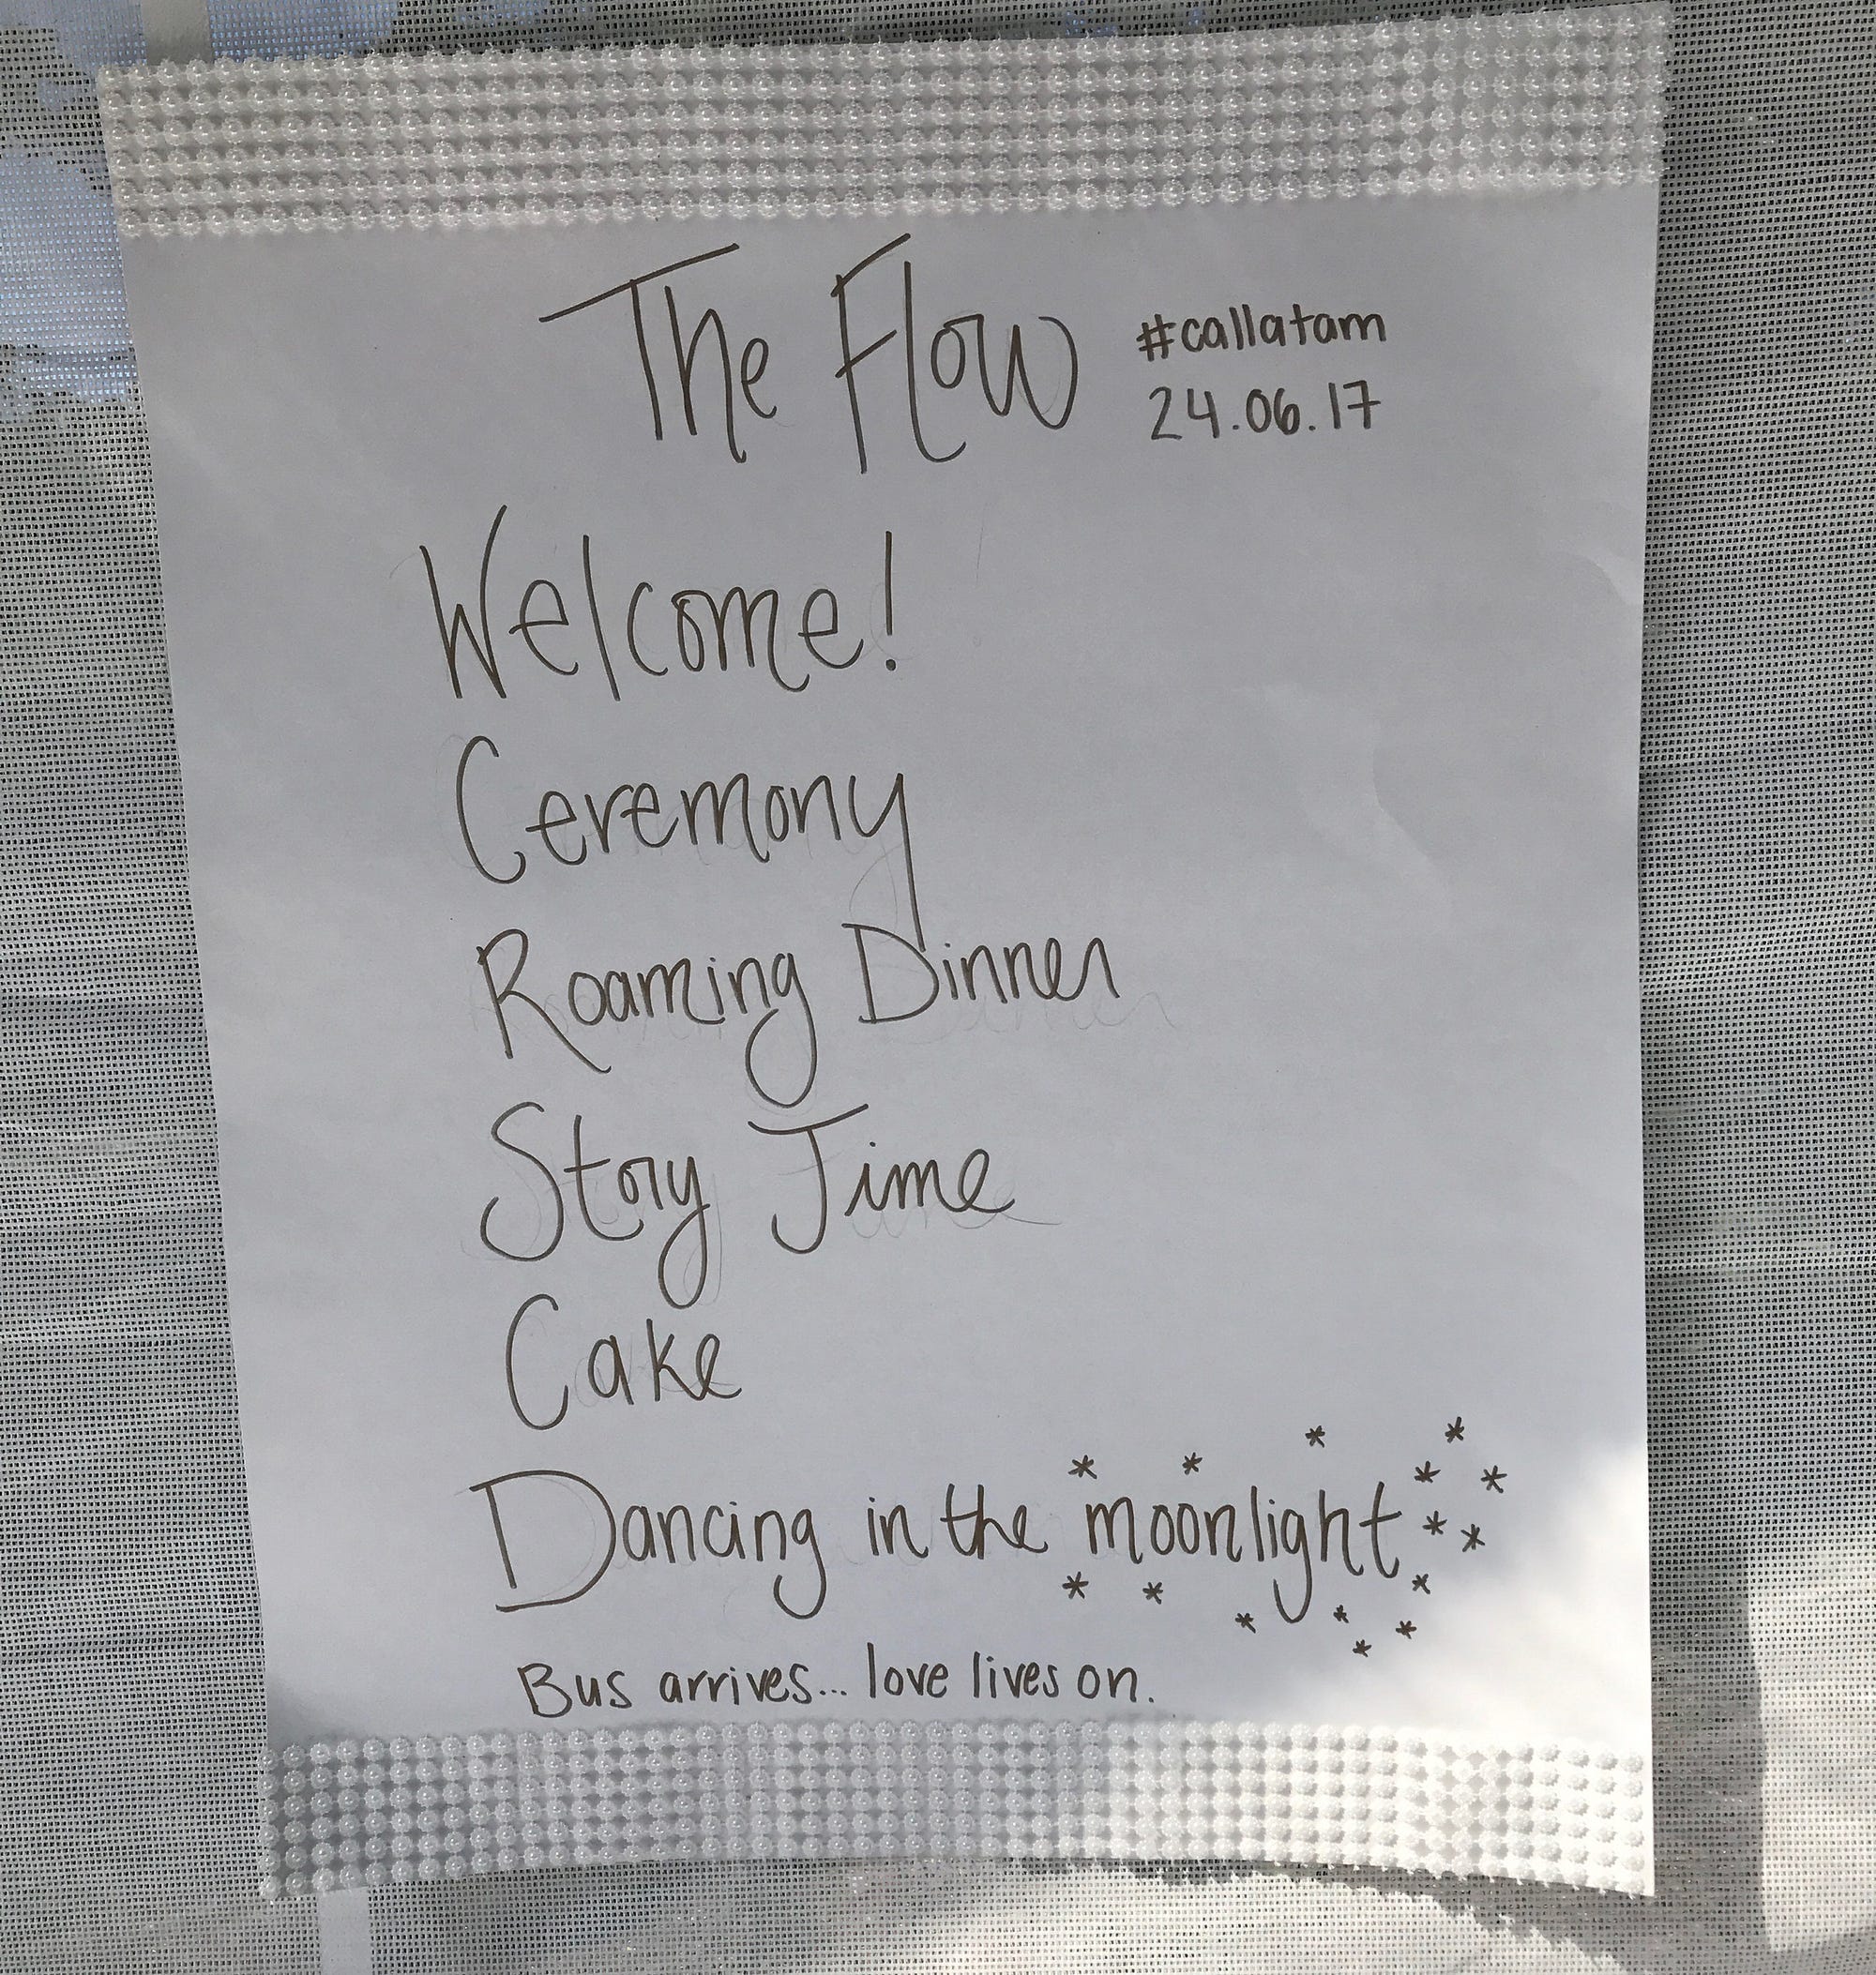 The Flow
#callatam
24.06.17
Welcome!
Ceremony
Roaming Dinner
Story Time
Cake
Dancing in the moonlight
Bus arrives... love lives on.